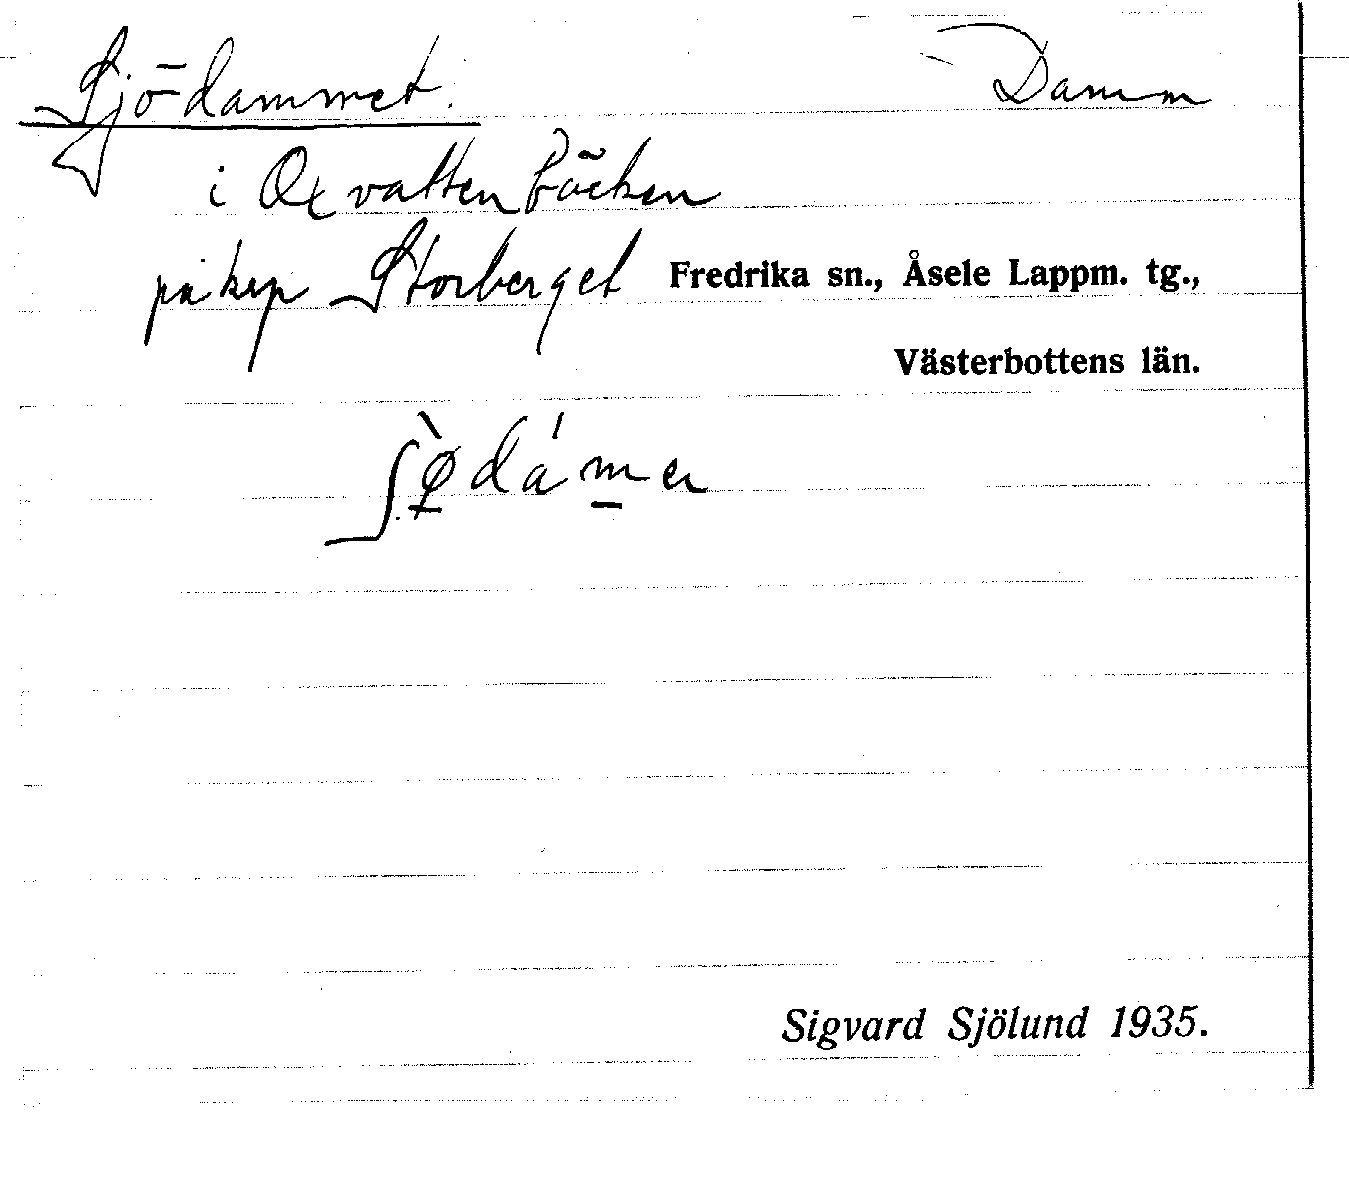 Sjö-dammet. Damm
i Oxvattenbäcken
på krp Storberget Fredrika sn., Åsele Lappm. tg.,
Västerbottens län.
Sigvard Sjölund 1935.